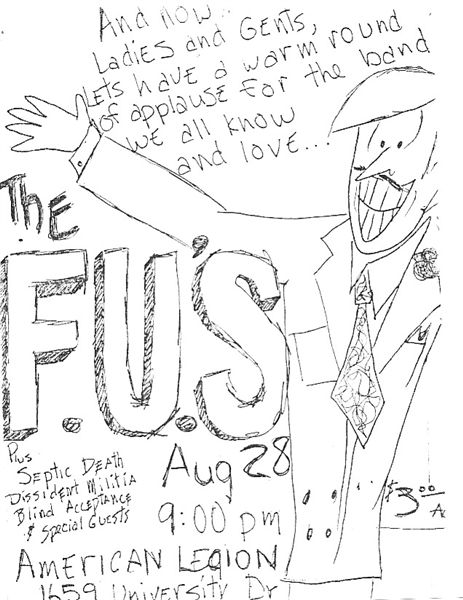 And now
Ladies and Gents,
Lets have a warm round
of applause for the band
we all know
and love...
The
F.U.'S
Plus
Septic Death
Dissident Militia
Blind Acceptance
& Special Guests
Aug 28
9:00 pm
$3.00
American Legion
1659 University Dr